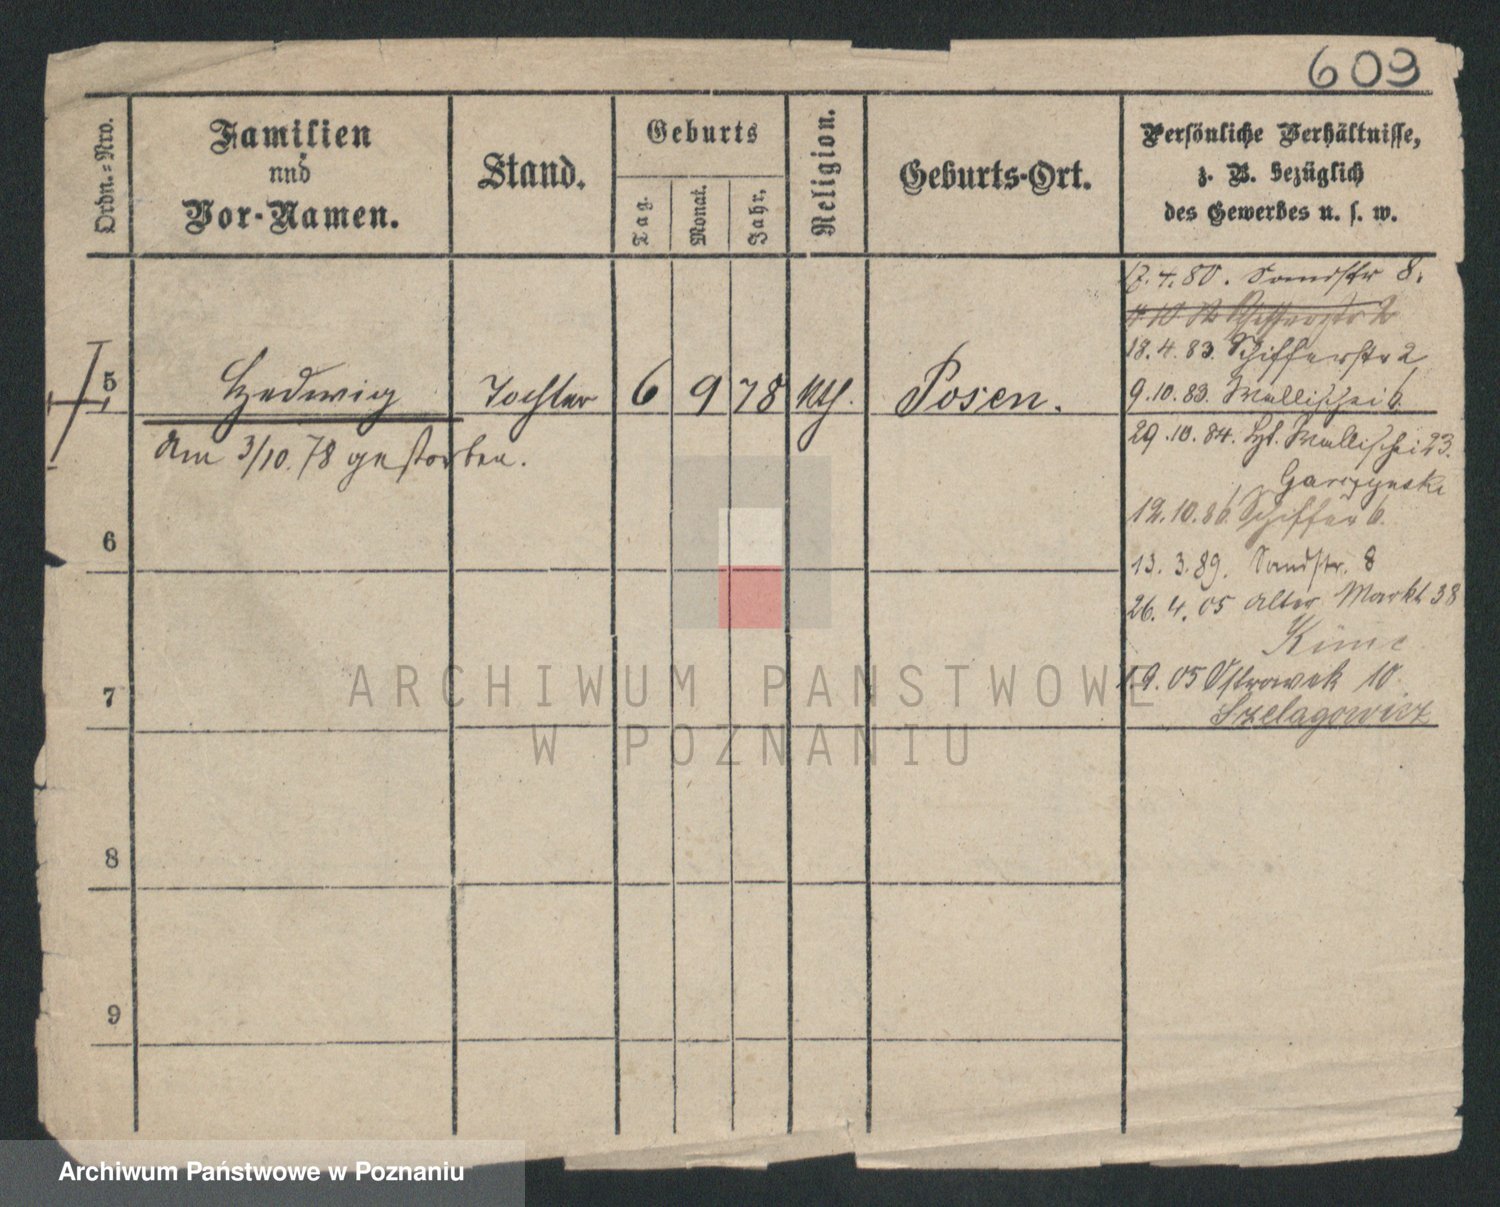 609
Ordn.-Nro.
Familien
und
Vor-Namen.
Stand.
Geburts
Tag.
Monat.
Jahr.
Religion.
Geburts-Ort.
Persönliche Verhältnisse,
z. B. bezüglich
des Gewerbes u. s. w.
17.4.80. Sandstr 8.
18.4.83. Schifferstr 2
5 Hedwig Tochter 6 9 78 kth. Posen.
9.10.83. Wallischei 6
am 3/10.78 gestorben.
29.10.84. Wallischei 23.
12.10.86 Schiffer 6.
6
13.3.89. Sandstr. 8
26.4.05 Alter Markt 38
7
1.9.05 Ostrowek 10
Szelagowicz
8
9
ARCHIWUM PAŃSTWOWE
W POZNANIU
Archiwum Państwowe w Poznaniu